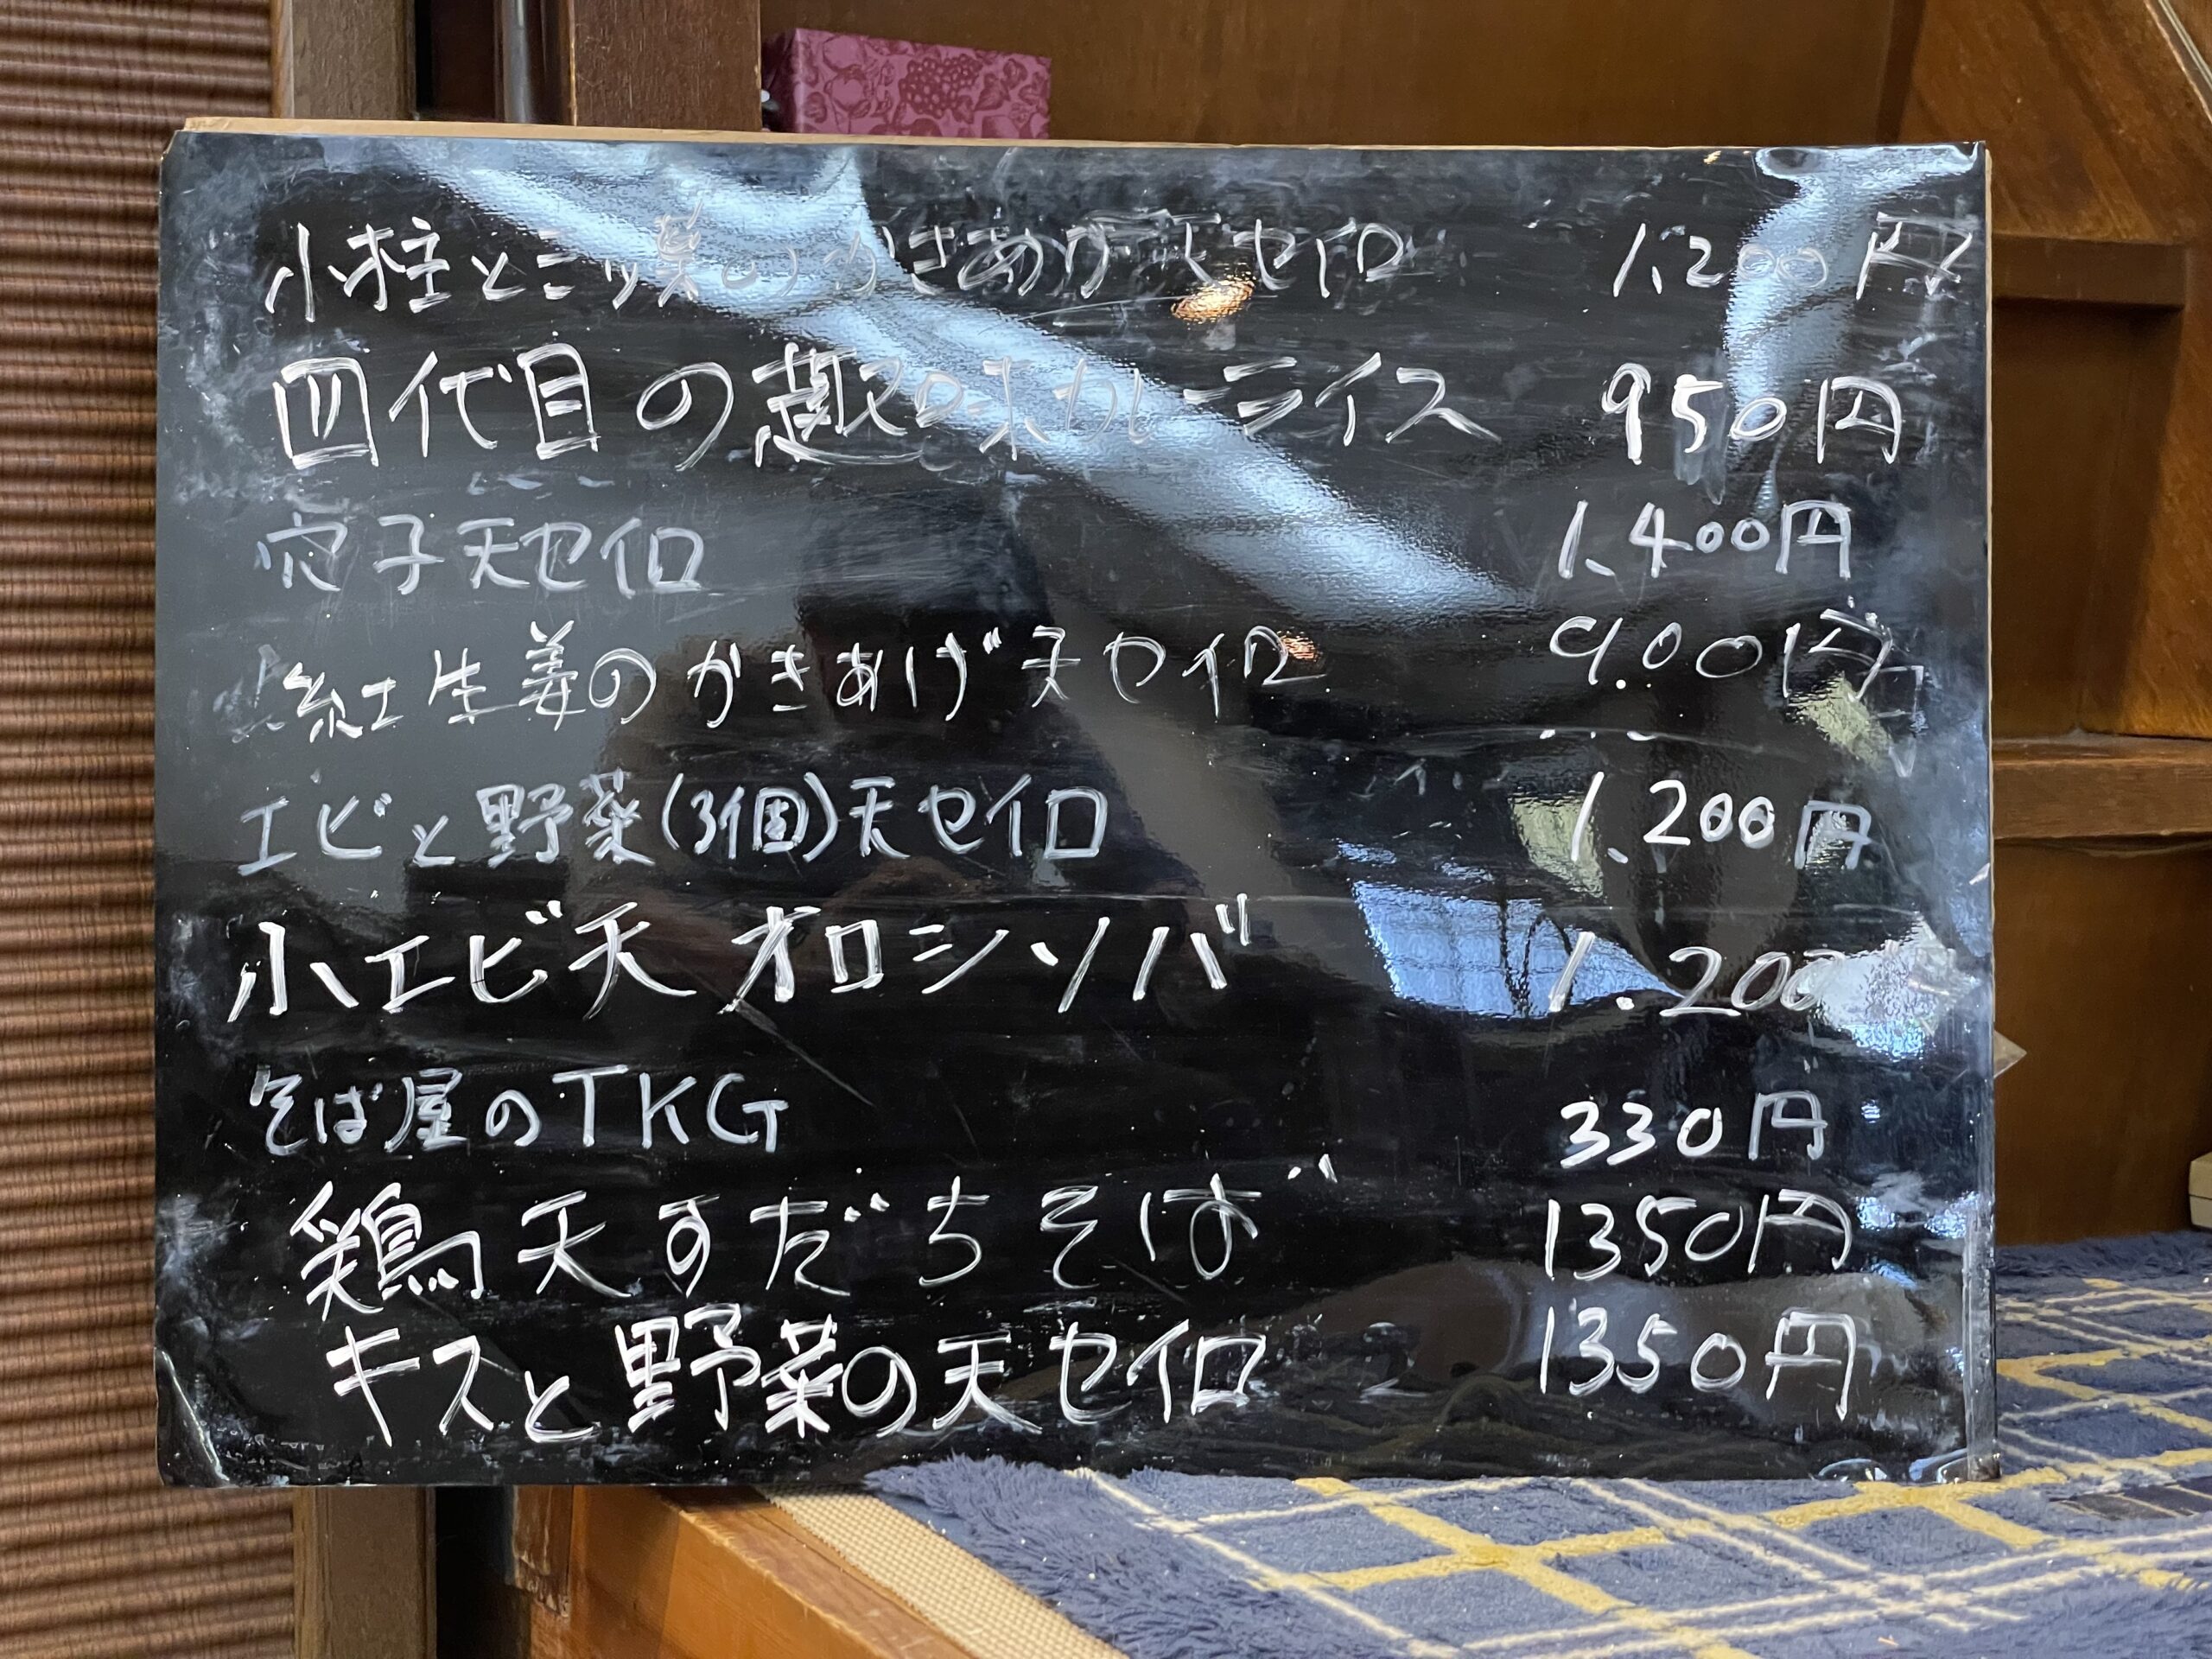 小柱と三ツ葉のかきあげ天セイロ 1.200円
四代目の趣味カレーライス 950円
穴子天セイロ 1.400円
紅生姜のかきあげ天セイロ 900円
エビと野菜(3個)天セイロ 1.200円
小エビ天オロシソバ 1.200
そば屋のTKG 330円
鶏天すだちそば 1350円
キスと野菜の天セイロ 1350円